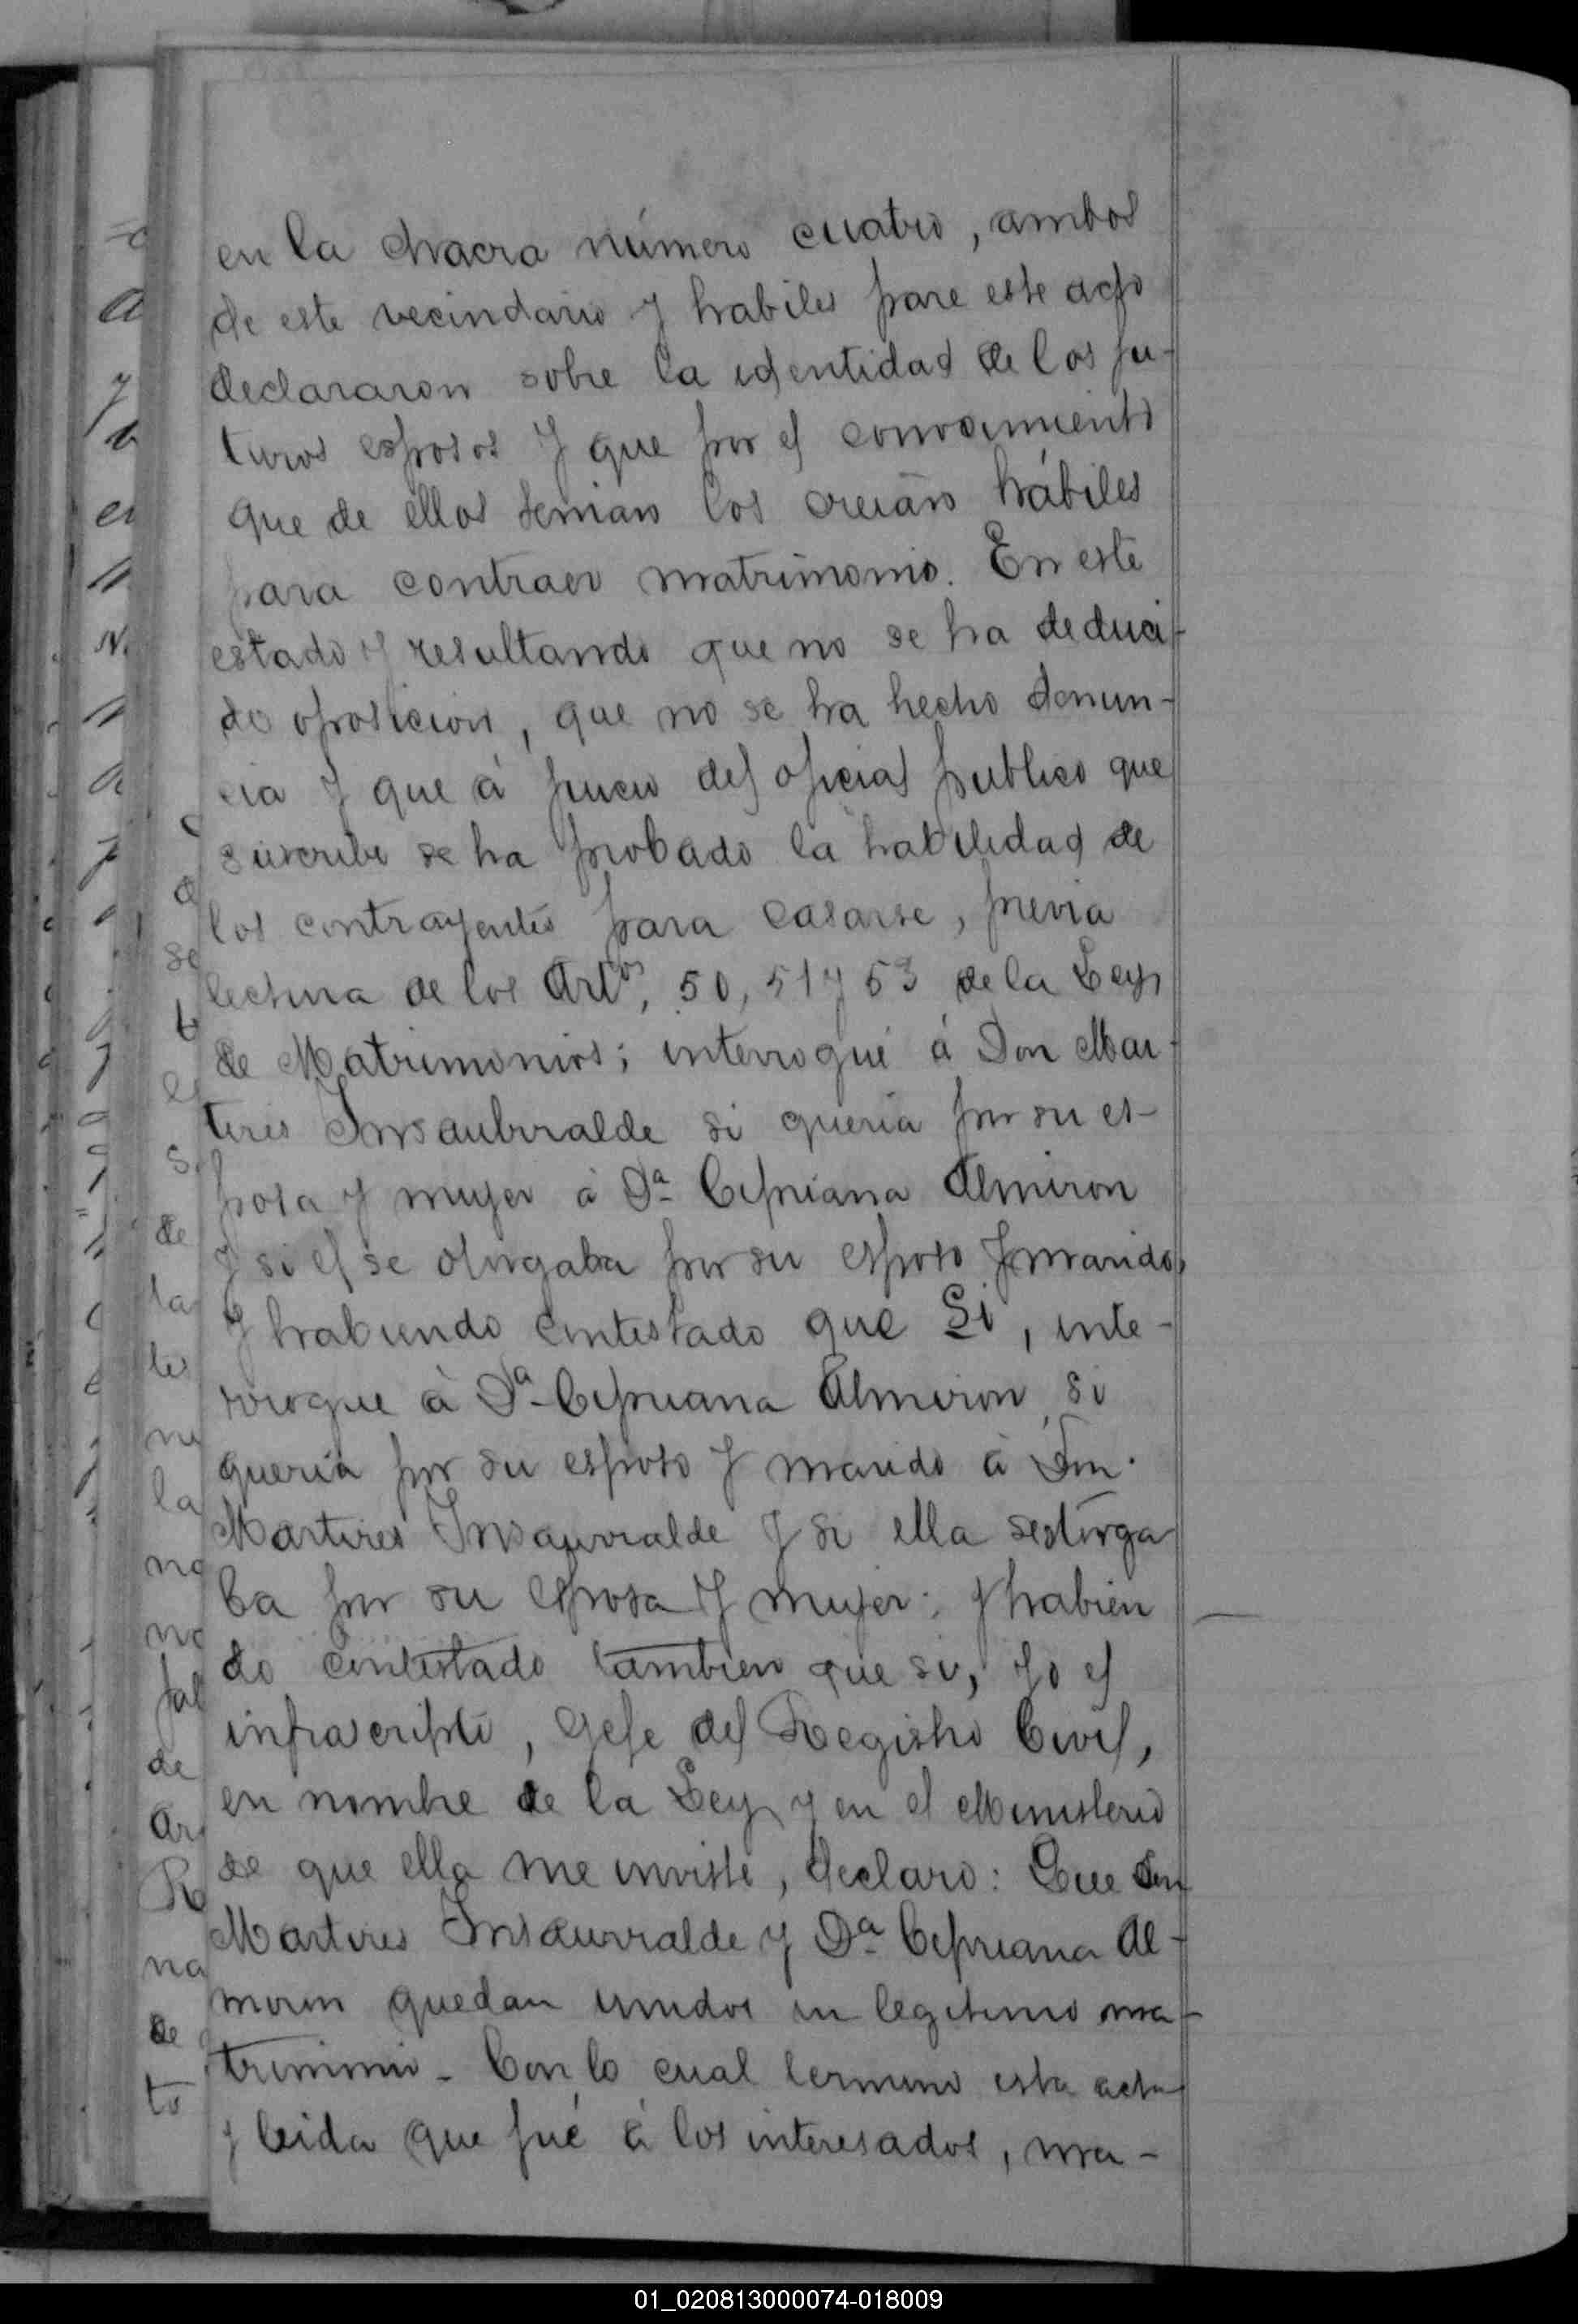 en la chacra número cuatro, ambos
de este vecindario y habiles para este acto
declararon sobre la identidad de los fu-
turos esposos y que por el conocimiento
que de ellos tenian los creian hábiles
para contraer matrimonio. En este
estado y resultando que no se ha deduci-
do oposicion, que no se ha hecho denun-
cia y que á juicio del oficial publico que
suscribe se ha probado la habilidad de
los contrayentes para casarse, previa
lectura de los Artos, 50, 51 y 53 de la Ley
de Matrimonios; interrogué á Don Mar-
tires Insaubrralde si queria por su es-
posa y mujer á Da Cipriana Almiron
y si el se otorgaba por su esposo y marido,
y habiendo contestado que Si, inte-
rrogue á Da Cipriana Almiron si
queria por su esposo y marido á Don
Martires Insaurralde y si ella se otorga
ba por su esposa y mujer; y habien
do contestado tambien que si, yo el
infrascripto, Gefe del Registro Civil,
en nombre de la Ley y en el Ministerio
de que ella me inviste, declaro: Que Don
Martires Insaurralde y Da Cipriana Al-
miron quedan unidos en legitimo ma-
trimonio - Con lo cual termino esta acta
y leida que fué á los interesados, ma-
01_020813000074-018009